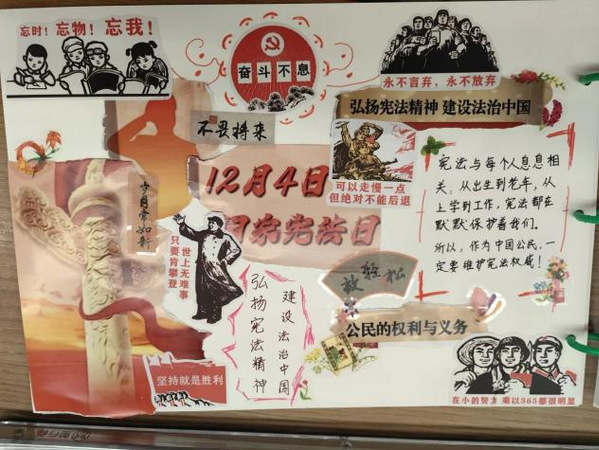 忘时！忘物！忘我！
奋斗不息
永不言弃，永不放弃
弘扬宪法精神 建设法治中国
不畏将来
12月4日
国家宪法日
岁月常如新
可以走慢一点
但绝对不能后退
宪法与每个人息息相
关，从出生到老年，从
上学到工作，宪法都在
默默保护着我们。
所以，作为中国公民，一
定要维护宪法权威！
世上无难事
只要肯攀登
建设法治中国
弘扬宪法精神
轻松
公民的权利与义务
坚持就是胜利
在小的努力 乘以365都很明显